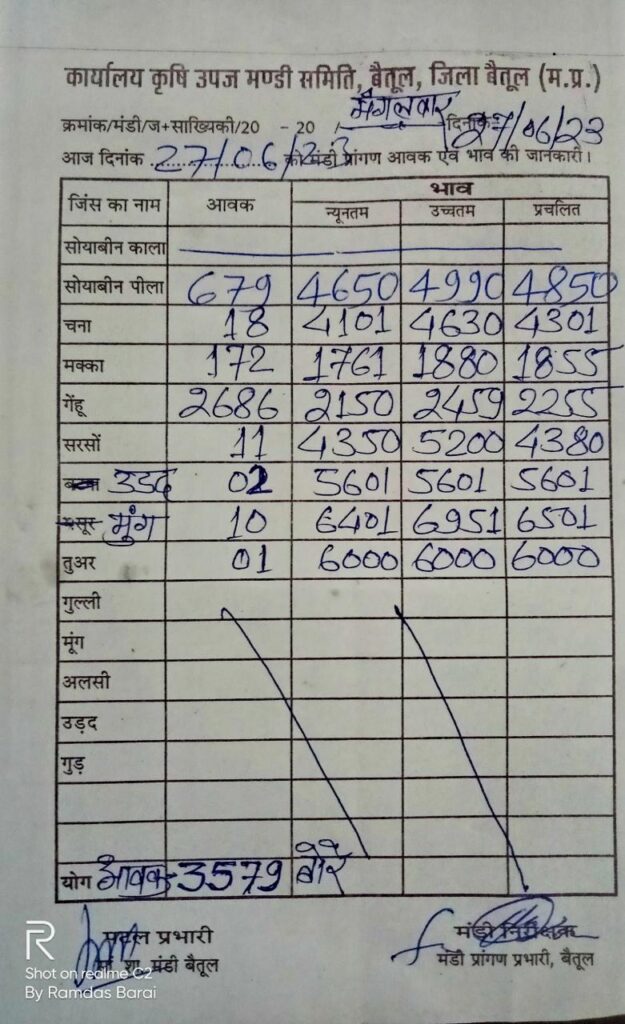 कार्यालय कृषि उपज मण्डी समिति, बैतूल, जिला बैतूल (म.प्र.)
मंगलवार
क्रमांक/मंडी/ज+साख्यिकी/20 - 20 / दिनांक 27/06/23
आज दिनांक 27/06/23 को मंडी प्रांगण आवक एवं भाव की जानकारी।
जिंस का नाम आवक भाव
न्यूनतम उच्चतम प्रचलित
सोयाबीन काला
सोयाबीन पीला 679 4650 4990 4850
चना 18 4101 4630 4301
मक्का 172 1761 1880 1855
गेंहू 2686 2150 2459 2255
सरसों 11 4350 5200 4380
उडद 02 5601 5601 5601
मुंग 10 6401 6951 6501
तुअर 01 6000 6000 6000
गुल्ली
मूंग
अलसी
उड़द
गुड़
योग आवक 3579 बोरे
प्रभारी मंडी निरीक्षक
मंडी बैतूल मंडी प्रांगण प्रभारी, बैतूल
Shot on realme C2
By Ramdas Barai